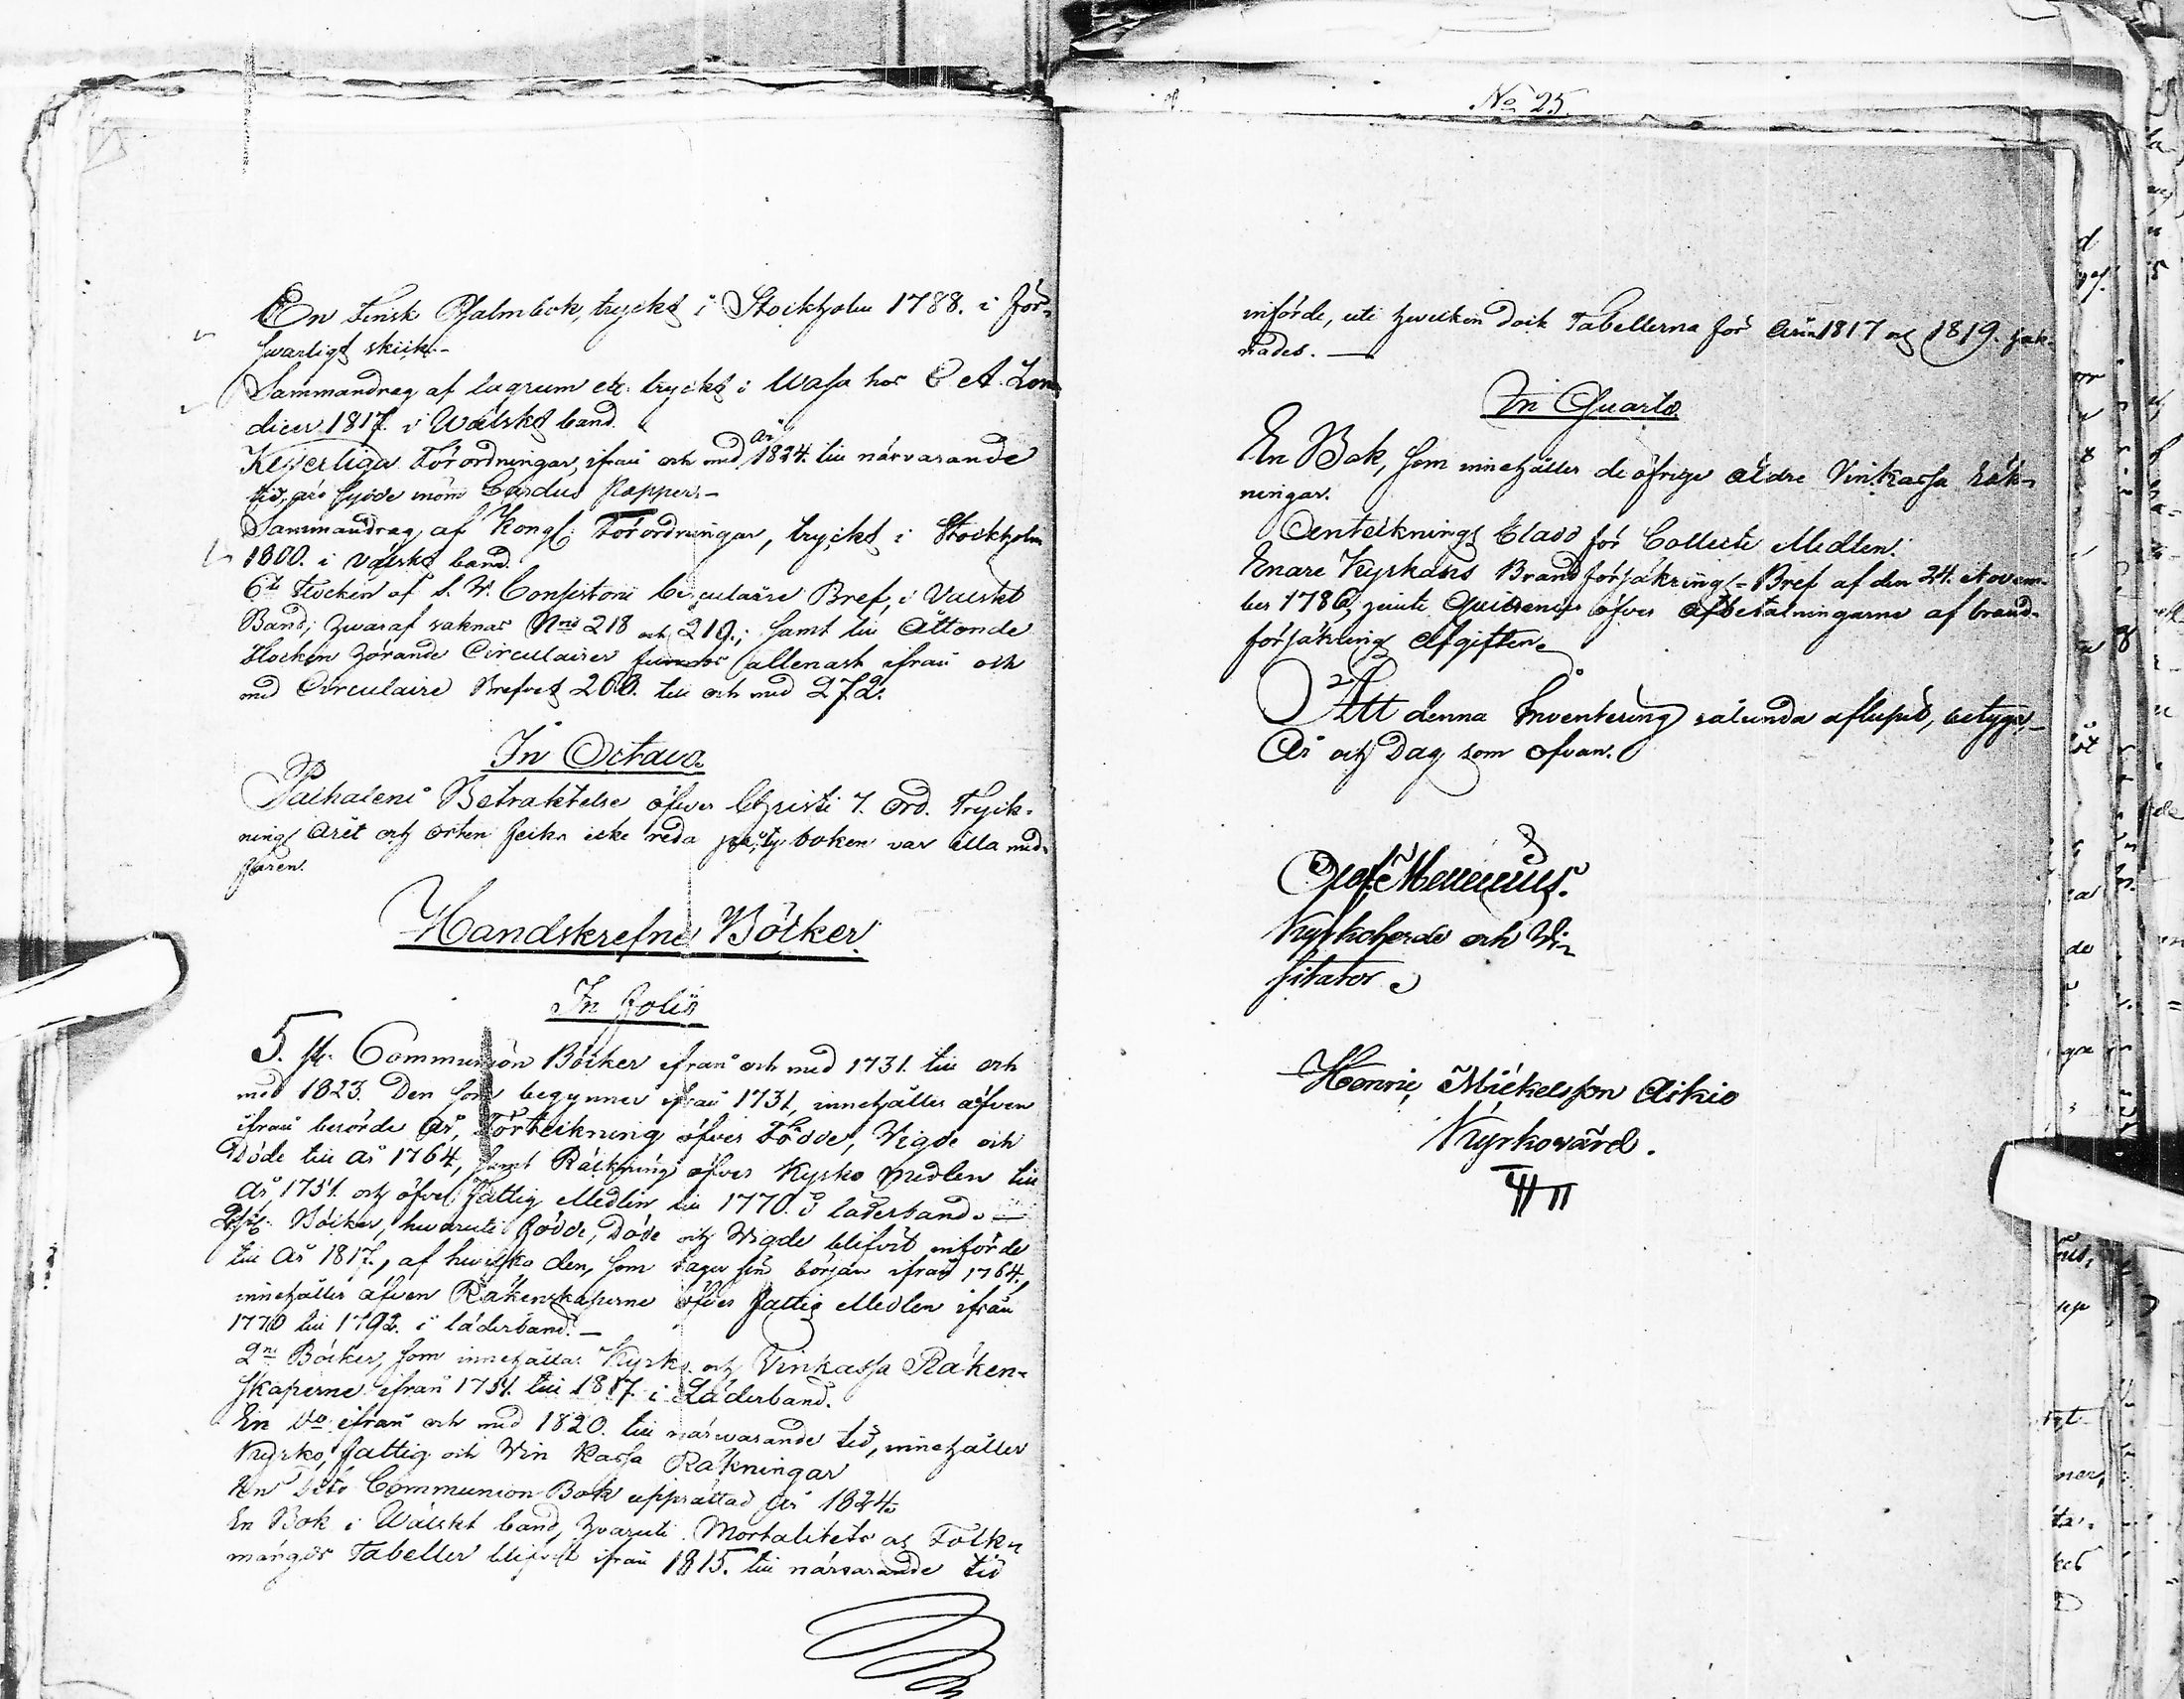 En Finsk Psalmbok, tryckt i Stockholm 1788. i för-
svarligt skick.-
Sammandrag af lagrum etc. tryckt i Wasa hos C A Lon-
dicer 1817. i Wälskt band.
Kejserliga Förordningar, ifrån och med år 1824. till närvarande
tid, äro sydde inom Cardus Papper.-
Sammandrag af Kongl. Förordningar, tryckt i Stockholm
1800. i välskt band.
6te Flocken af S. V. Consistorii Circulaire Bref, i Välskt
Band; hvaraf saknas Nris 218 och 219.; samt till Åttonde
Flocken hörande Circulairer finnas allenast ifrån och
med Circulaire Brefvet 260. till och med 272.
In Octavo
Pachaleni Betraktelse öfver Christi 7. ord. Tryck-
nings året och orten ficks icke reda på, ty boken var illa med-
faren.
Handskrefne Böcker
In Folio
5. st. Communion Böcker ifrån och med 1731. till och
med 1823. Den som begynner ifrån 1731, innehåller äfven
ifrån berörde år, Förteckning öfver Födde, Vigde och
Döde till år 1764, samt Räkning öfver Kyrko medlen till
år 1751. och öfver Fattig Medlen till 1770. i läderband. —
2st. Böcker, hvaruti Födde, Döde och Vigde blifvit införde
till år 1817., af hvilka den, som tager sin början ifrån 1764.,
innehåller äfven Räkenskaperne öfver Fattig Medlen ifrån
1770 till 1792. i läderband. —
2ne Böcker, som innehålla Kyrko och Vinkassa Räken-
skaperne ifrån 1751. till 1817. i Läderband.
En Do ifrån och med 1820. till närvarande tid, innehåller
Kyrko, Fattig och Vin Kassa Räkningar
En Dito Communion Bok upprättad år 1824.
En Bok i Wälskt band, hvaruti Mortalitets och Folk-
mängds Tabeller blifvit ifrån 1815. till närvarande tid
No 25.
införde, uti hvilken dock Tabellerna för åren 1817 och 1819. sak-
nades. —
In Quarto
En Bok, som innehåller de öfrige äldre Vinkassa Räk-
ningar.
Anteiknings Cladd för Collecte Medlen.
Enare Kyrkans Brandförsäkrings-Bref af den 24. Novem-
ber 1786, jemte Quittencer öfver afbetalningarne af brand-
försäkrings Afgiften.
Att denna Inventering sålunda aflupit, betygar
År och Dag som ofvan.
Olof Mellenius.
Kyrkoherde och Vi-
sitator
Henric Mickelsson Aikio
Kyrkovärd.